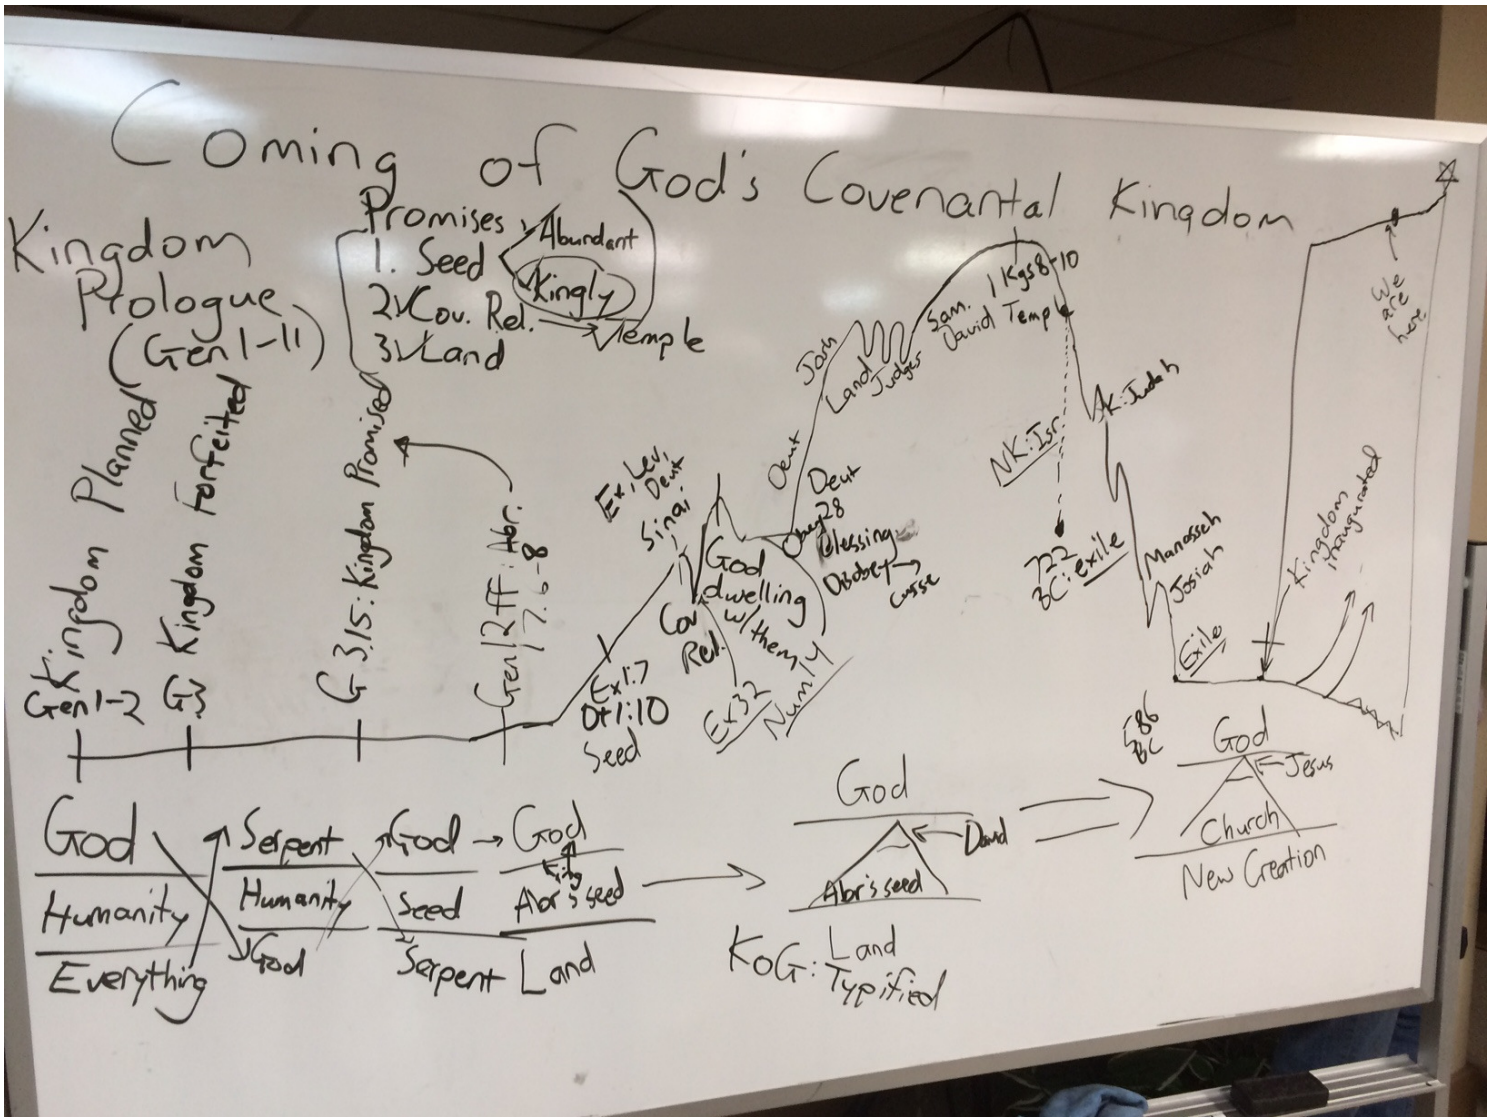 Coming of God's Covenantal Kingdom
Kingdom
Prologue
(Gen 1-11)
Promises
1. Seed
Abundant
Kingly
2 Cov. Rel.
Temple
3 Land
Kingdom Planned
Gen 1-2
Kingdom Forfeited
G3
G 3.15: Kingdom Promised
Gen 12ff: Abr.
Ex 1:7
Dt 1:10
Seed
Ex, Lev,
Deut
Sinai
Cov
Rel.
Ex 32
God
dwelling
w/ them
Num 14
Deut
Deut
28
Obey
Blessing
Disobey →
curse
Josh
Land
Judges
Sam.
David
1 Kgs 8-10
Temple
NK: Isr.
722
BC: exile
K: Judah
Manasseh
Josiah
Exile
586
BC
Kingdom
inaugurated
We
are
here
God
Humanity
Everything
Serpent
Humanity
God
God
Seed
Serpent
God
Abr's seed
Land
God
David
Abr's seed
KoG: Land
Typified
God
Jesus
Church
New Creation